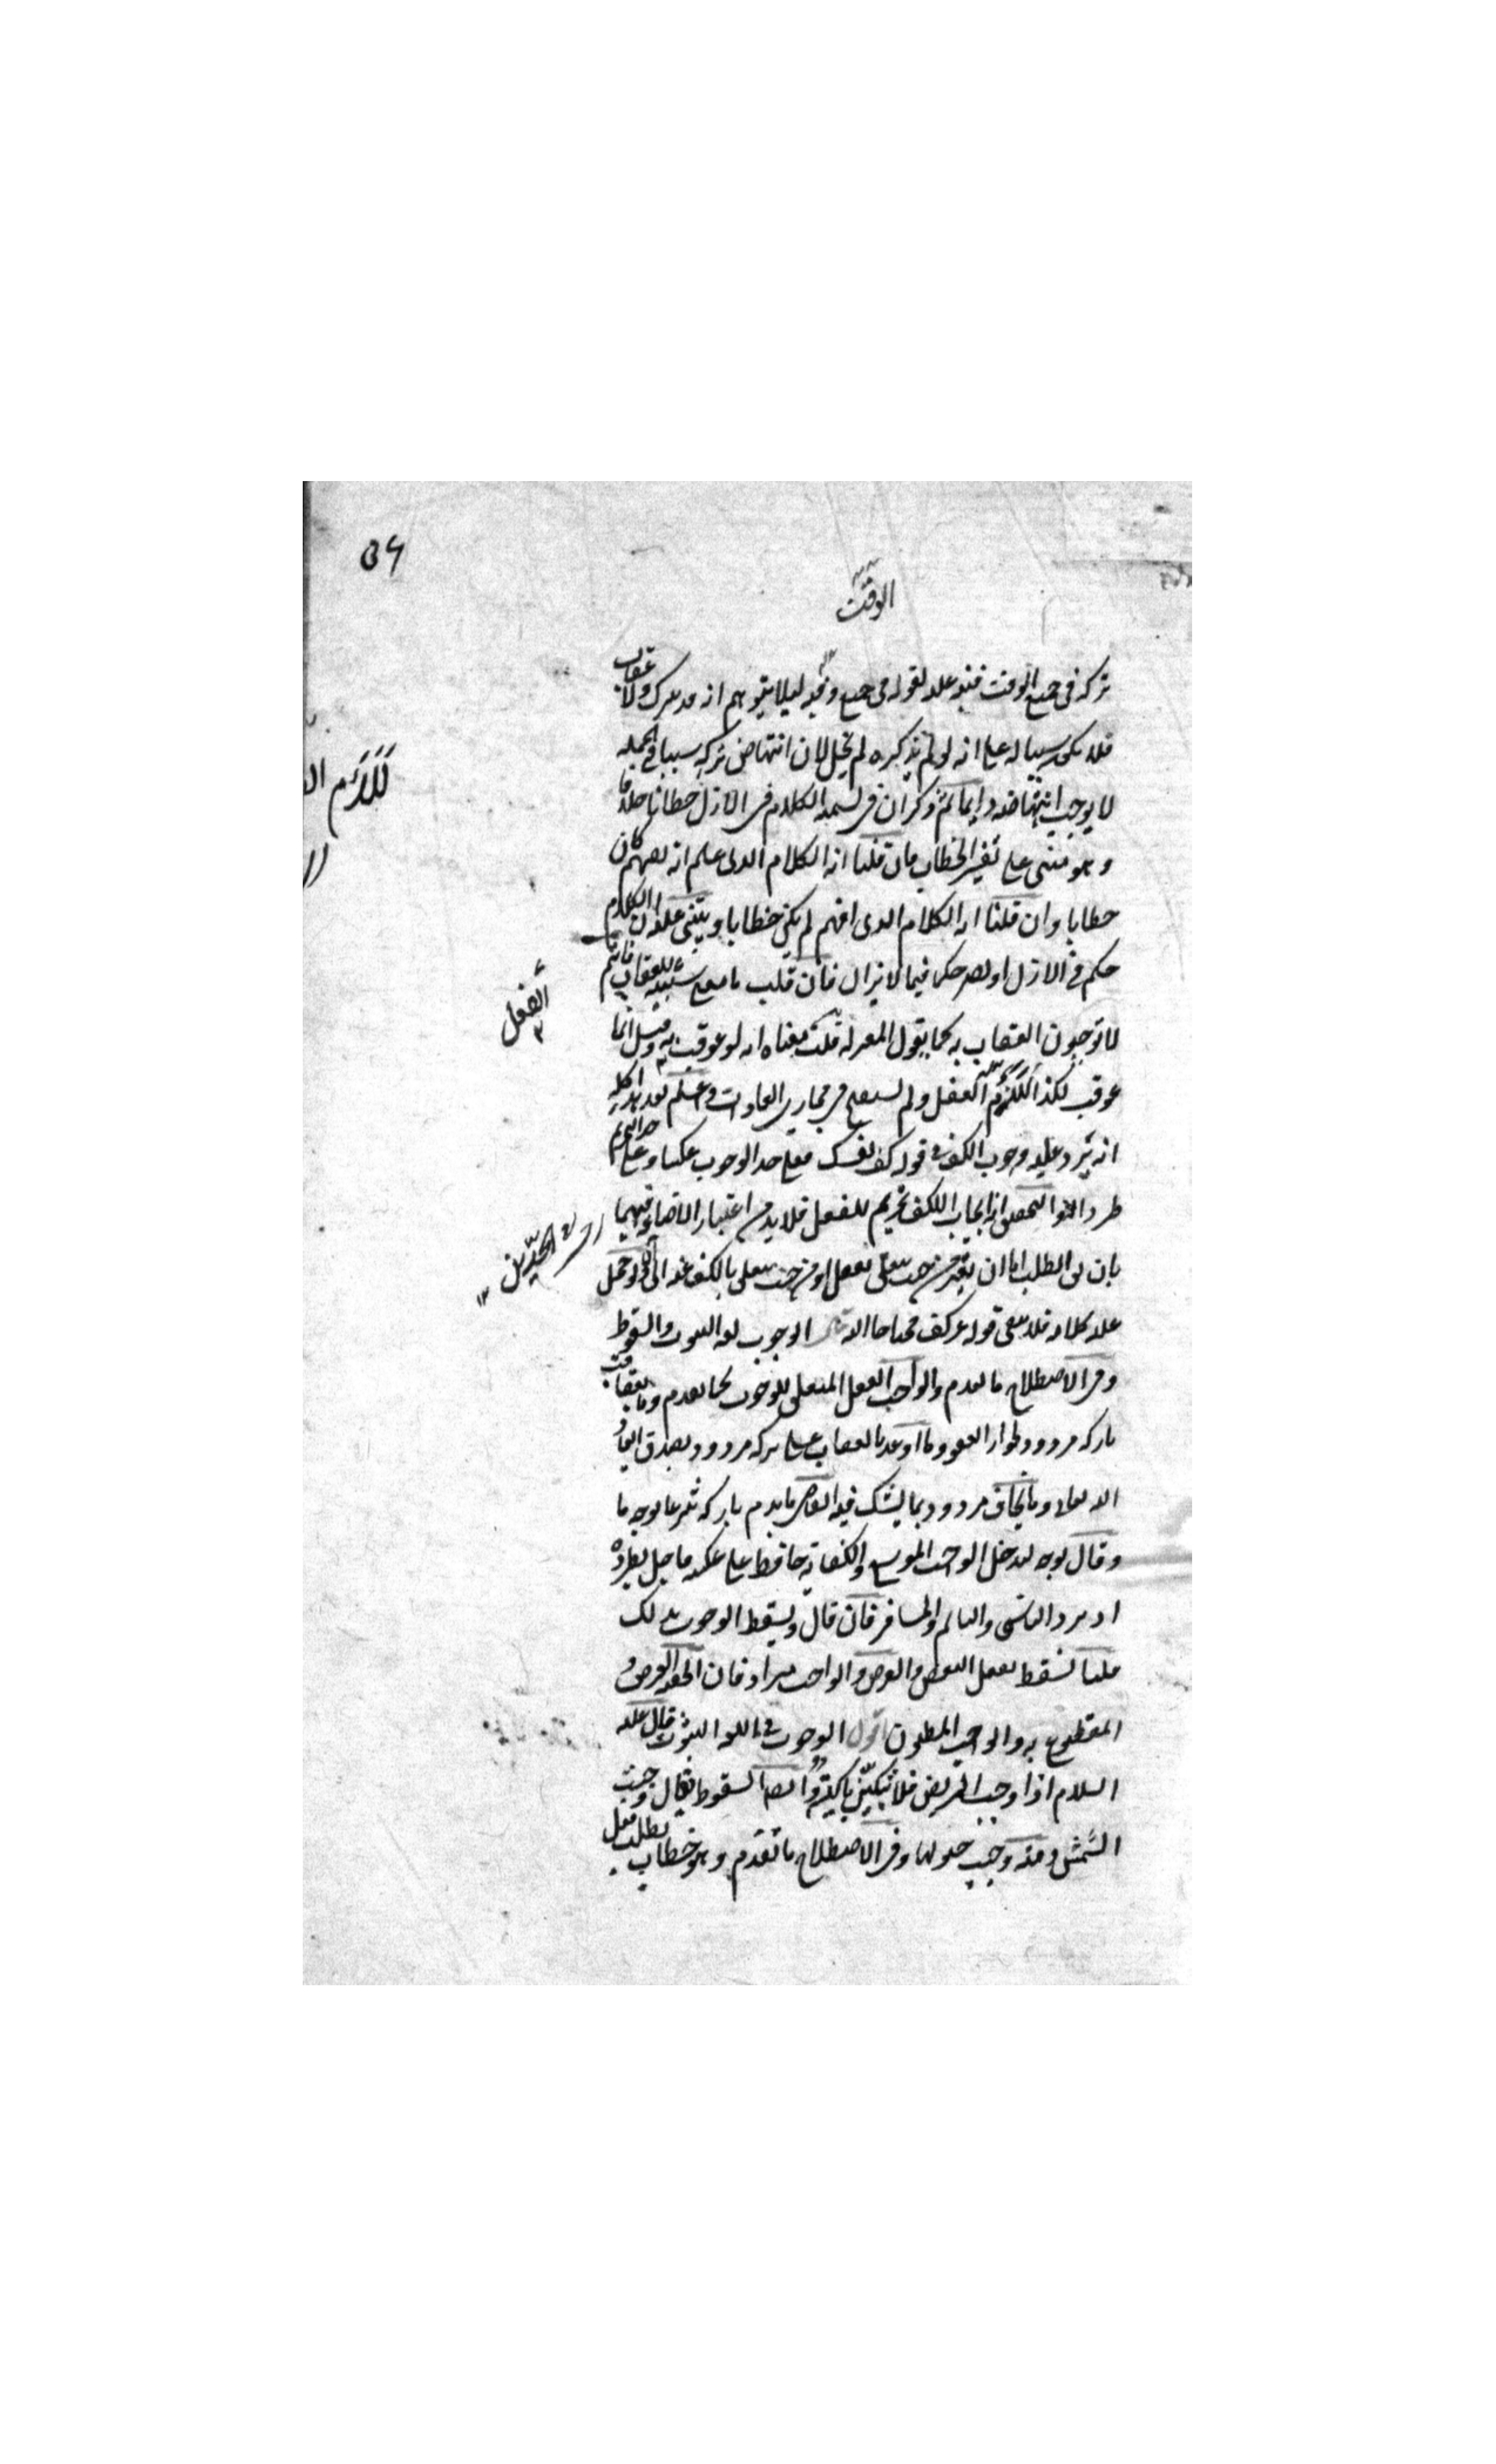 ٥٦
الوقت
تركه في جميع الوقت فنبه عليه بقوله في جميع وقته ليلا يتوهم انه قد يترك ولا عقاب
فلا يكون سببا له على انه لو لم يذكره لم يخل لان انتهاض تركه سببا في الجملة
لا يوجب انتهاضه دايما ثم ذكر ان في تسمية الكلام في الازل خطابا خلافا
وهو مبنى على تفسير الخطاب فان قلنا انه الكلام الذى علم انه يفهم كان
خطابا وان قلنا انه الكلام الذى افهم لم يكن خطابا ويبتنى عليه ان الكلام
حكم في الازل او يصير حكما فيما لا يزال فان قلت ما معنى سببيته للعقاب فانتم
لا توجبون العقاب به كما يقول المعتزلة قلت معناه انه لو عوقب به وقيل انما
عوقب لكذا للائم العقل ولم يستقبح في مجارى العادات واعلم بعد هذا كله
انه يرد عليه وجوب الكف في قوله كف نفسك فعلى حد الوجوب عكسا وعلى حد التحريم
طردا والتحقيق ان ايجاب الكف تحريم للفعل فلا بد من اعتبار الاضافة فيهما
بان الطلب اما ان يعتبر من حيث يتعلق بفعل او من حيث يتعلق بالكف عنه
عليه كلامه فلا يبقى قوله غير كف محتاجا اليه قال الوجوب لغة الثبوت والسقوط
وفي الاصطلاح ما تقدم والواجب الفعل المتعلق للوجوب كما تقدم وما يعاقب
تاركه مردود بجواز العفو وما اوعد بالعقاب على تركه مردود بصدق ايعاد
الله تعالى وما يخاف مردود بما يشك فيه القاضى ما يذم تاركه شرعا بوجه ما
وقال بوجه ليدخل الواجب الموسع والكفاية حافظ على عكسه فاخل بطرده
اذ يرد الناسى والنائم والمسافر فان قال ويسقط الوجوب بذلك
قلنا يسقط بفعل البعض والفرض والواجب مترادفان الحنفية الفرض
المقطوع به والواجب المظنون اقول الوجوب في اللغة الثبوت قال عليه
السلام اذا وجب المريض فلا تبكين باكية وايضا السقوط يقال وجبت
الشمس ومنه وجبت جنوبها وفي الاصطلاح ما تقدم وهو خطاب بطلب فعل
الفعل
للائم